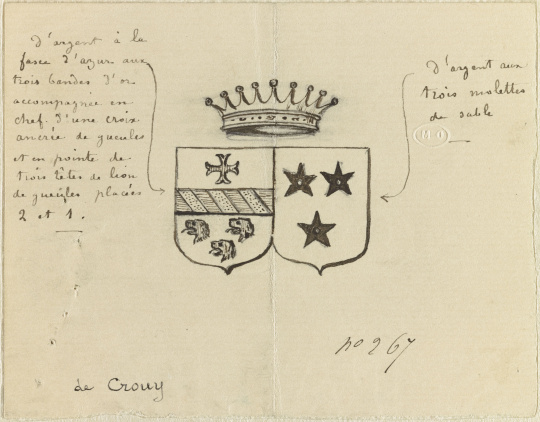 D'argent à la
fasce d'azur aux
trois bandes d'or
accompagnée en
chef d'une croix
ancrée de gueules
et en pointe de
trois têtes de lion
de gueules placées
2 et 1.
D'argent aux
trois molettes
de sable
no 267
de Crouy